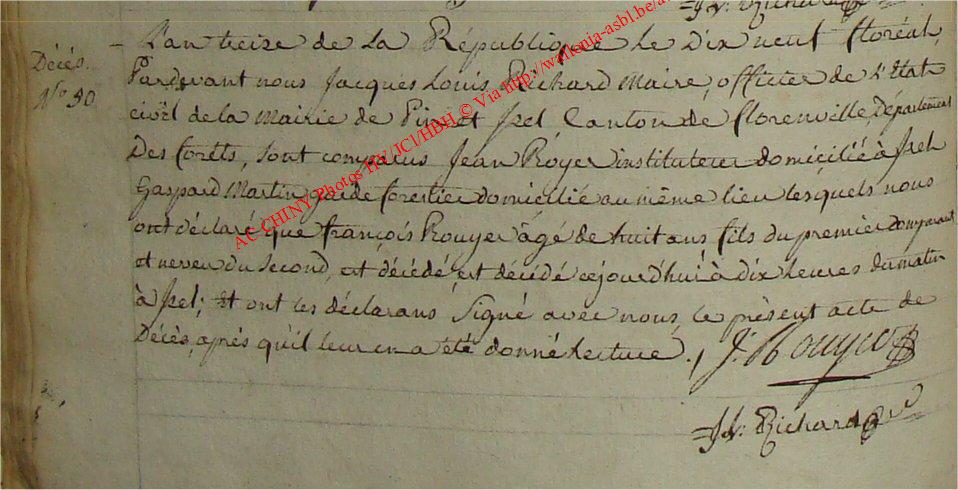 Jh: Richard
Décès.
N° 50
L'an treize de la République le Dix neuf floréal,
Pardevant nous Jacques Louis Richard Maire, officier de L'Etat
civil de la Mairie de Pin et Izel, Canton de florenville Département
Des forêts, sont comparus Jean Royer instituteur domicilié à Izel
Gaspard Martin garde forestier domicilié au même lieu lesquels nous
ont déclaré que françois Rouyer âgé de huit ans fils du premier comparant
et neveu du Second, est décédé est décédé cejourd'hui à dix heures du matin
à Izel; Et ont les déclarans Signé avec nous, le présent acte de
Décès, après qu'il leur en a été donné lecture.
J: Rouyer
Jh: Richard
AC CHINY Photos HV/JCl/HBH © Via http://wallonia-asbl.be/